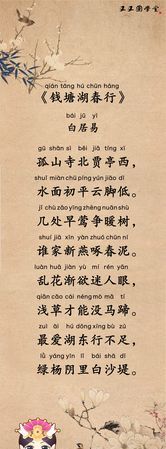 王玉圆学堂
qián táng hú chūn háng
《钱塘湖春行》
bái jū yì
白居易
gū shān sì běi jiǎ tíng xī
孤山寺北贾亭西，
shuǐ miàn chū píng yún jiǎo dī
水面初平云脚低。
jǐ chù zǎo yīng zhēng nuǎn shù
几处早莺争暖树，
shuí jiā xīn yàn zhuó chūn ní
谁家新燕啄春泥。
luàn huā jiàn yù mí rén yǎn
乱花渐欲迷人眼，
qiǎn cǎo cái néng mò mǎ tí
浅草才能没马蹄。
zuì ài hú dōng xíng bù zú
最爱湖东行不足，
lǜ yáng yīn lǐ bái shā dī
绿杨阴里白沙堤。